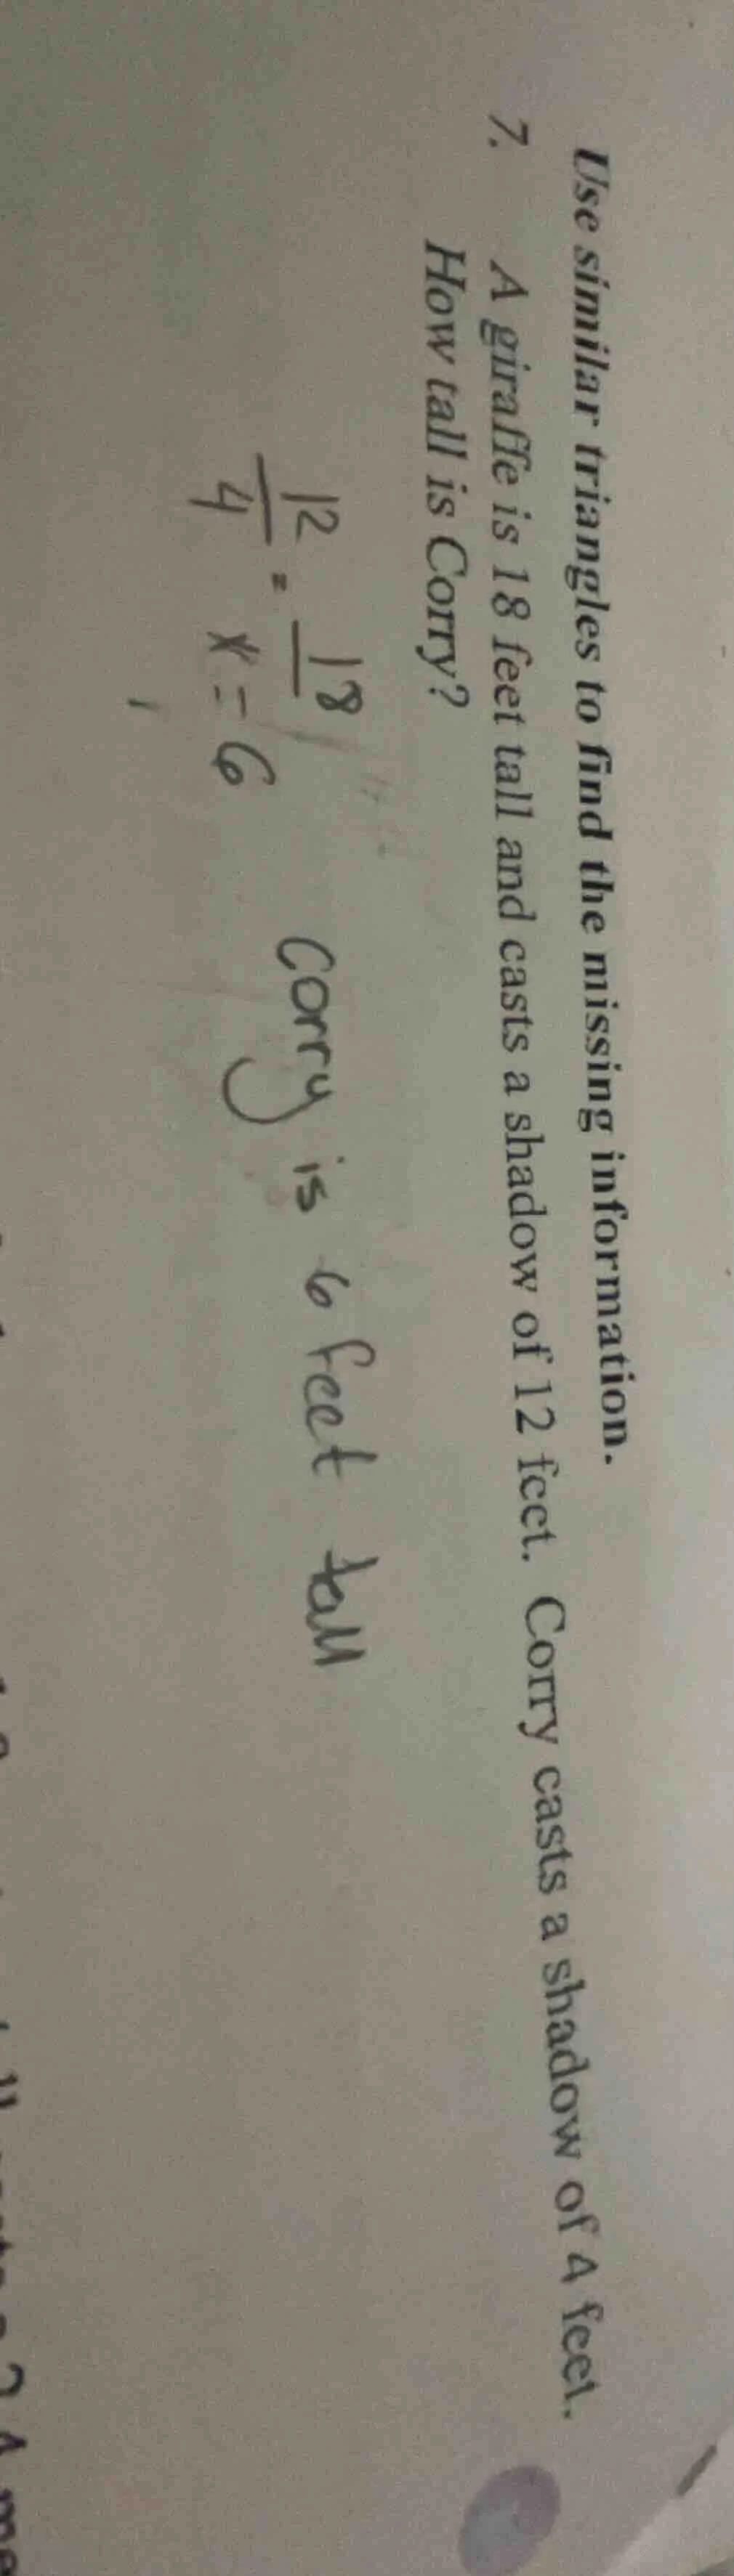 Use similar triangles to find the missing information.
7. A giraffe is 18 feet tall and casts a shadow of 12 feet. Corry casts a shadow of 4 feet.
How tall is Corry?
12/4 = 18/x = 6
Corry is 6 feet tall